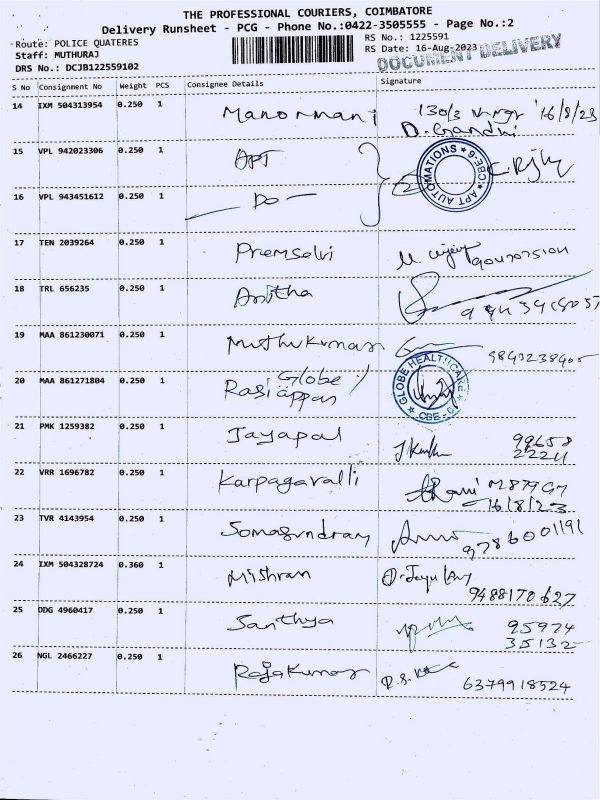 THE PROFESSIONAL COURIERS, COIMBATORE
Delivery Runsheet - PCG - Phone No.:0422-3505555 - Page No.:2
Route: POLICE QUATERES
RS No.: 1225591
Staff: MUTHURAJ
RS Date: 16-Aug-2023
DOCUMENT DELIVERY
DRS No.: DCJB122559102
S No Consignment No Weight PCS Consignee Details Signature
14 IXM 504313954 0.250 1 Manormani 130/3 16/8/23
D. Gandhi
15 VPL 942023306 0.250 1 APT
APT AUTOMATIONS * CBE-6 *
16 VPL 943451612 0.250 1 — Do —
17 TEN 2039264 0.250 1 Premselvi
18 TRL 656235 0.250 1 Anitha
19 MAA 861230071 0.250 1 Muthukumar 9843238405
20 MAA 861271804 0.250 1 Globe /
Rasiappan
GLOBE HEALTHCARE * CBE
21 PMK 1259382 0.250 1 Jayapal 99658
22211
22 VRR 1696782 0.250 1 Karpagavalli
16/8/23
23 TVR 4143954 0.250 1 Somasundram 9786001191
24 IXM 504328724 0.360 1 Mishran
9488170627
25 DDG 4960417 0.250 1 Santhya 95974
35132
26 NGL 2466227 0.250 1 Rajakumar R.S. 6379918524